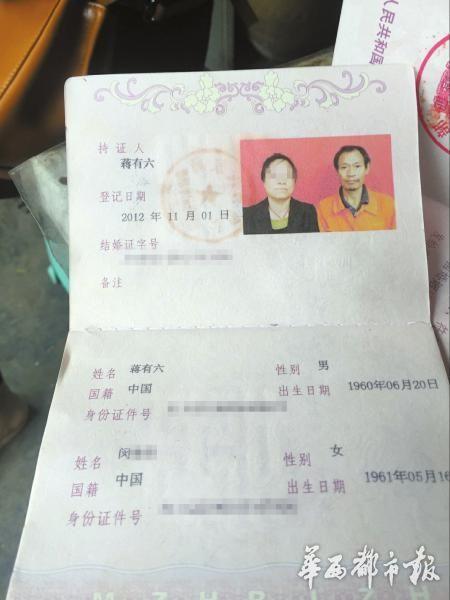 人民共和国
持证人
蒋有六
登记日期
2012 年 11 月 01 日
结婚证字号
备注
姓名 蒋有六 性别 男
国籍 中国 出生日期 1960年06月20日
身份证件号
姓名 闵 性别 女
国籍 中国 出生日期 1961年05月16
身份证件号
华西都市报